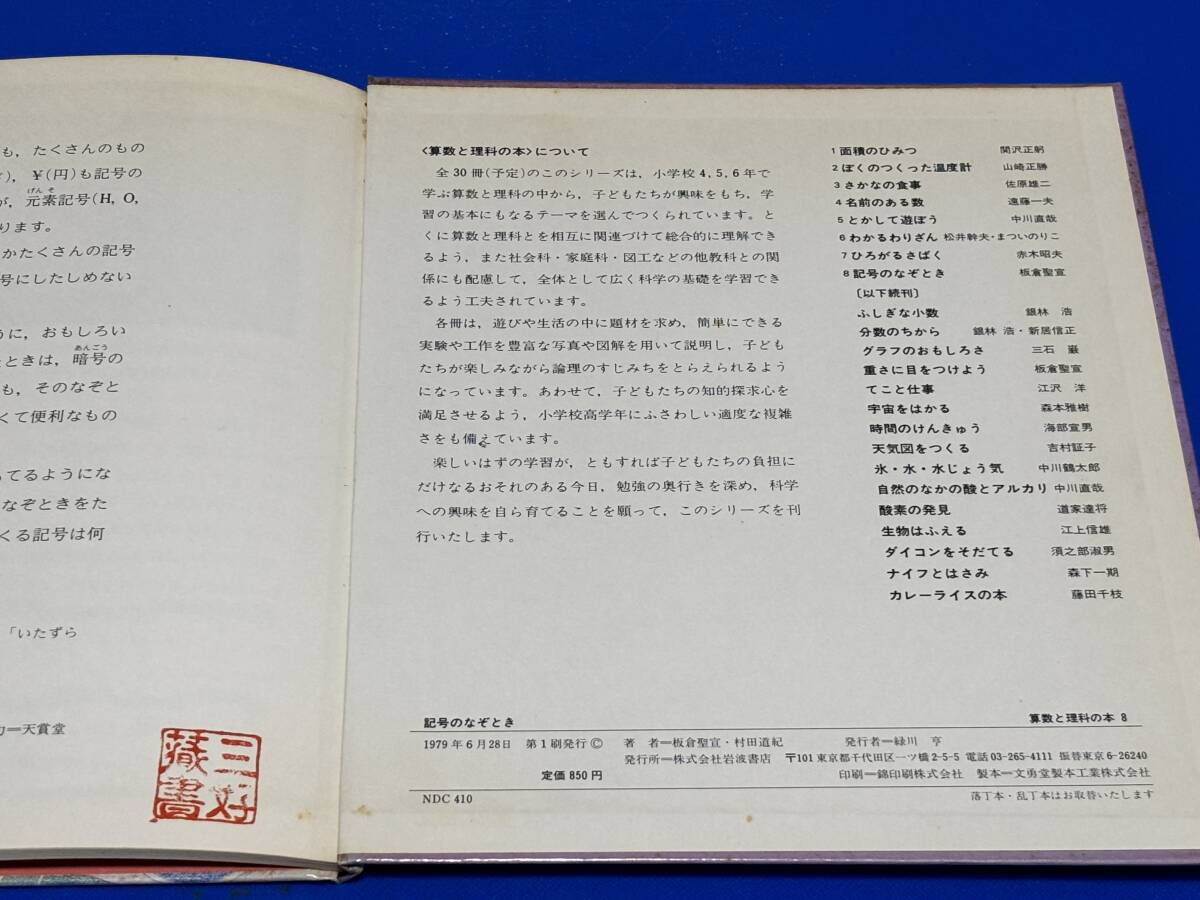 も，たくさんのもの
，¥(円)も記号の
が，元素記号(H, O,
ります。
かたくさんの記号
号にしたしめない
うに，おもしろい
ときは，暗号の
も，そのなぞと
くて便利なもの
てるようにな
なぞときをた
くる記号は何
「いたずら
カー＝天賞堂
三好
蔵書
〈算数と理科の本〉について
全30冊(予定)のこのシリーズは，小学校4, 5, 6年で
学ぶ算数と理科の中から，子どもたちが興味をもち，学
習の基本にもなるテーマを選んでつくられています。と
くに算数と理科とを相互に関連づけて総合的に理解でき
るよう，また社会科・家庭科・図工などの他教科との関
係にも配慮して，全体として広く科学の基礎を学習でき
るよう工夫されています。
各冊は，遊びや生活の中に題材を求め，簡単にできる
実験や工作を豊富な写真や図解を用いて説明し，子ども
たちが楽しみながら論理のすじみちをとらえられるよう
になっています。あわせて，子どもたちの知的探求心を
満足させるよう，小学校高学年にふさわしい適度な複雑
さをも備えています。
楽しいはずの学習が，ともすれば子どもたちの負担に
だけなるおそれのある今日，勉強の奥行きを深め，科学
への興味を自ら育てることを願って，このシリーズを刊
行いたします。
1 面積のひみつ 関沢正躬
2 ぼくのつくった温度計 山崎正勝
3 さかなの食事 佐原雄二
4 名前のある数 遠藤一夫
5 とかして遊ぼう 中川直哉
6 わかるわりざん 松井幹夫・まついのりこ
7 ひろがるさばく 赤木昭夫
8 記号のなぞとき 板倉聖宣
〔以下続刊〕
ふしぎな小数 銀林 浩
分数のちから 銀林 浩・新居信正
グラフのおもしろさ 三石 巌
重さに目をつけよう 板倉聖宣
てこと仕事 江沢 洋
宇宙をはかる 森本雅樹
時間のけんきゅう 海部宣男
天気図をつくる 吉村証子
氷・水・水じょう気 中川鶴太郎
自然のなかの酸とアルカリ 中川直哉
酸素の発見 道家達将
生物はふえる 江上信雄
ダイコンをそだてる 須之部淑男
ナイフとはさみ 森下一期
カレーライスの本 藤田千枝
記号のなぞとき 算数と理科の本 8
1979年6月28日 第1刷発行© 著 者＝板倉聖宣・村田道紀 発行者＝緑川 亨
発行所＝株式会社岩波書店 〒101 東京都千代田区一ツ橋2-5-5 電話03-265-4111 振替東京6-26240
定価850円 印刷＝錦印刷株式会社 製本＝文勇堂製本工業株式会社
NDC 410 落丁本・乱丁本はお取替いたします